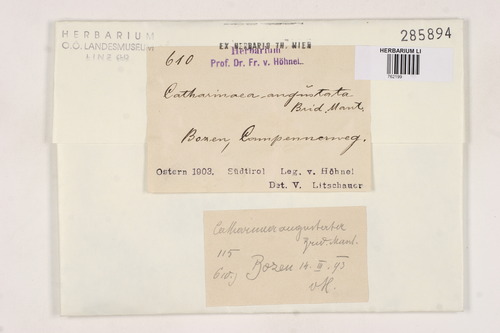 HERBARIUM
O.Ö. LANDESMUSEUM
LINZ 89
285894
HERBARIUM LI
762199
EX HERBARIO TH. WIEN
Herbarium
Prof. Dr. Fr. v. Höhnel.
610
Catharinaea angustata
Brid. Mant.
Bozen,
Ostern 1903. Südtirol Leg. v. Höhnel
Det. V. Litschauer
Catharinaea angustata
Brid. Mant.
115
610.) Bozen 14. III. 93
vH.